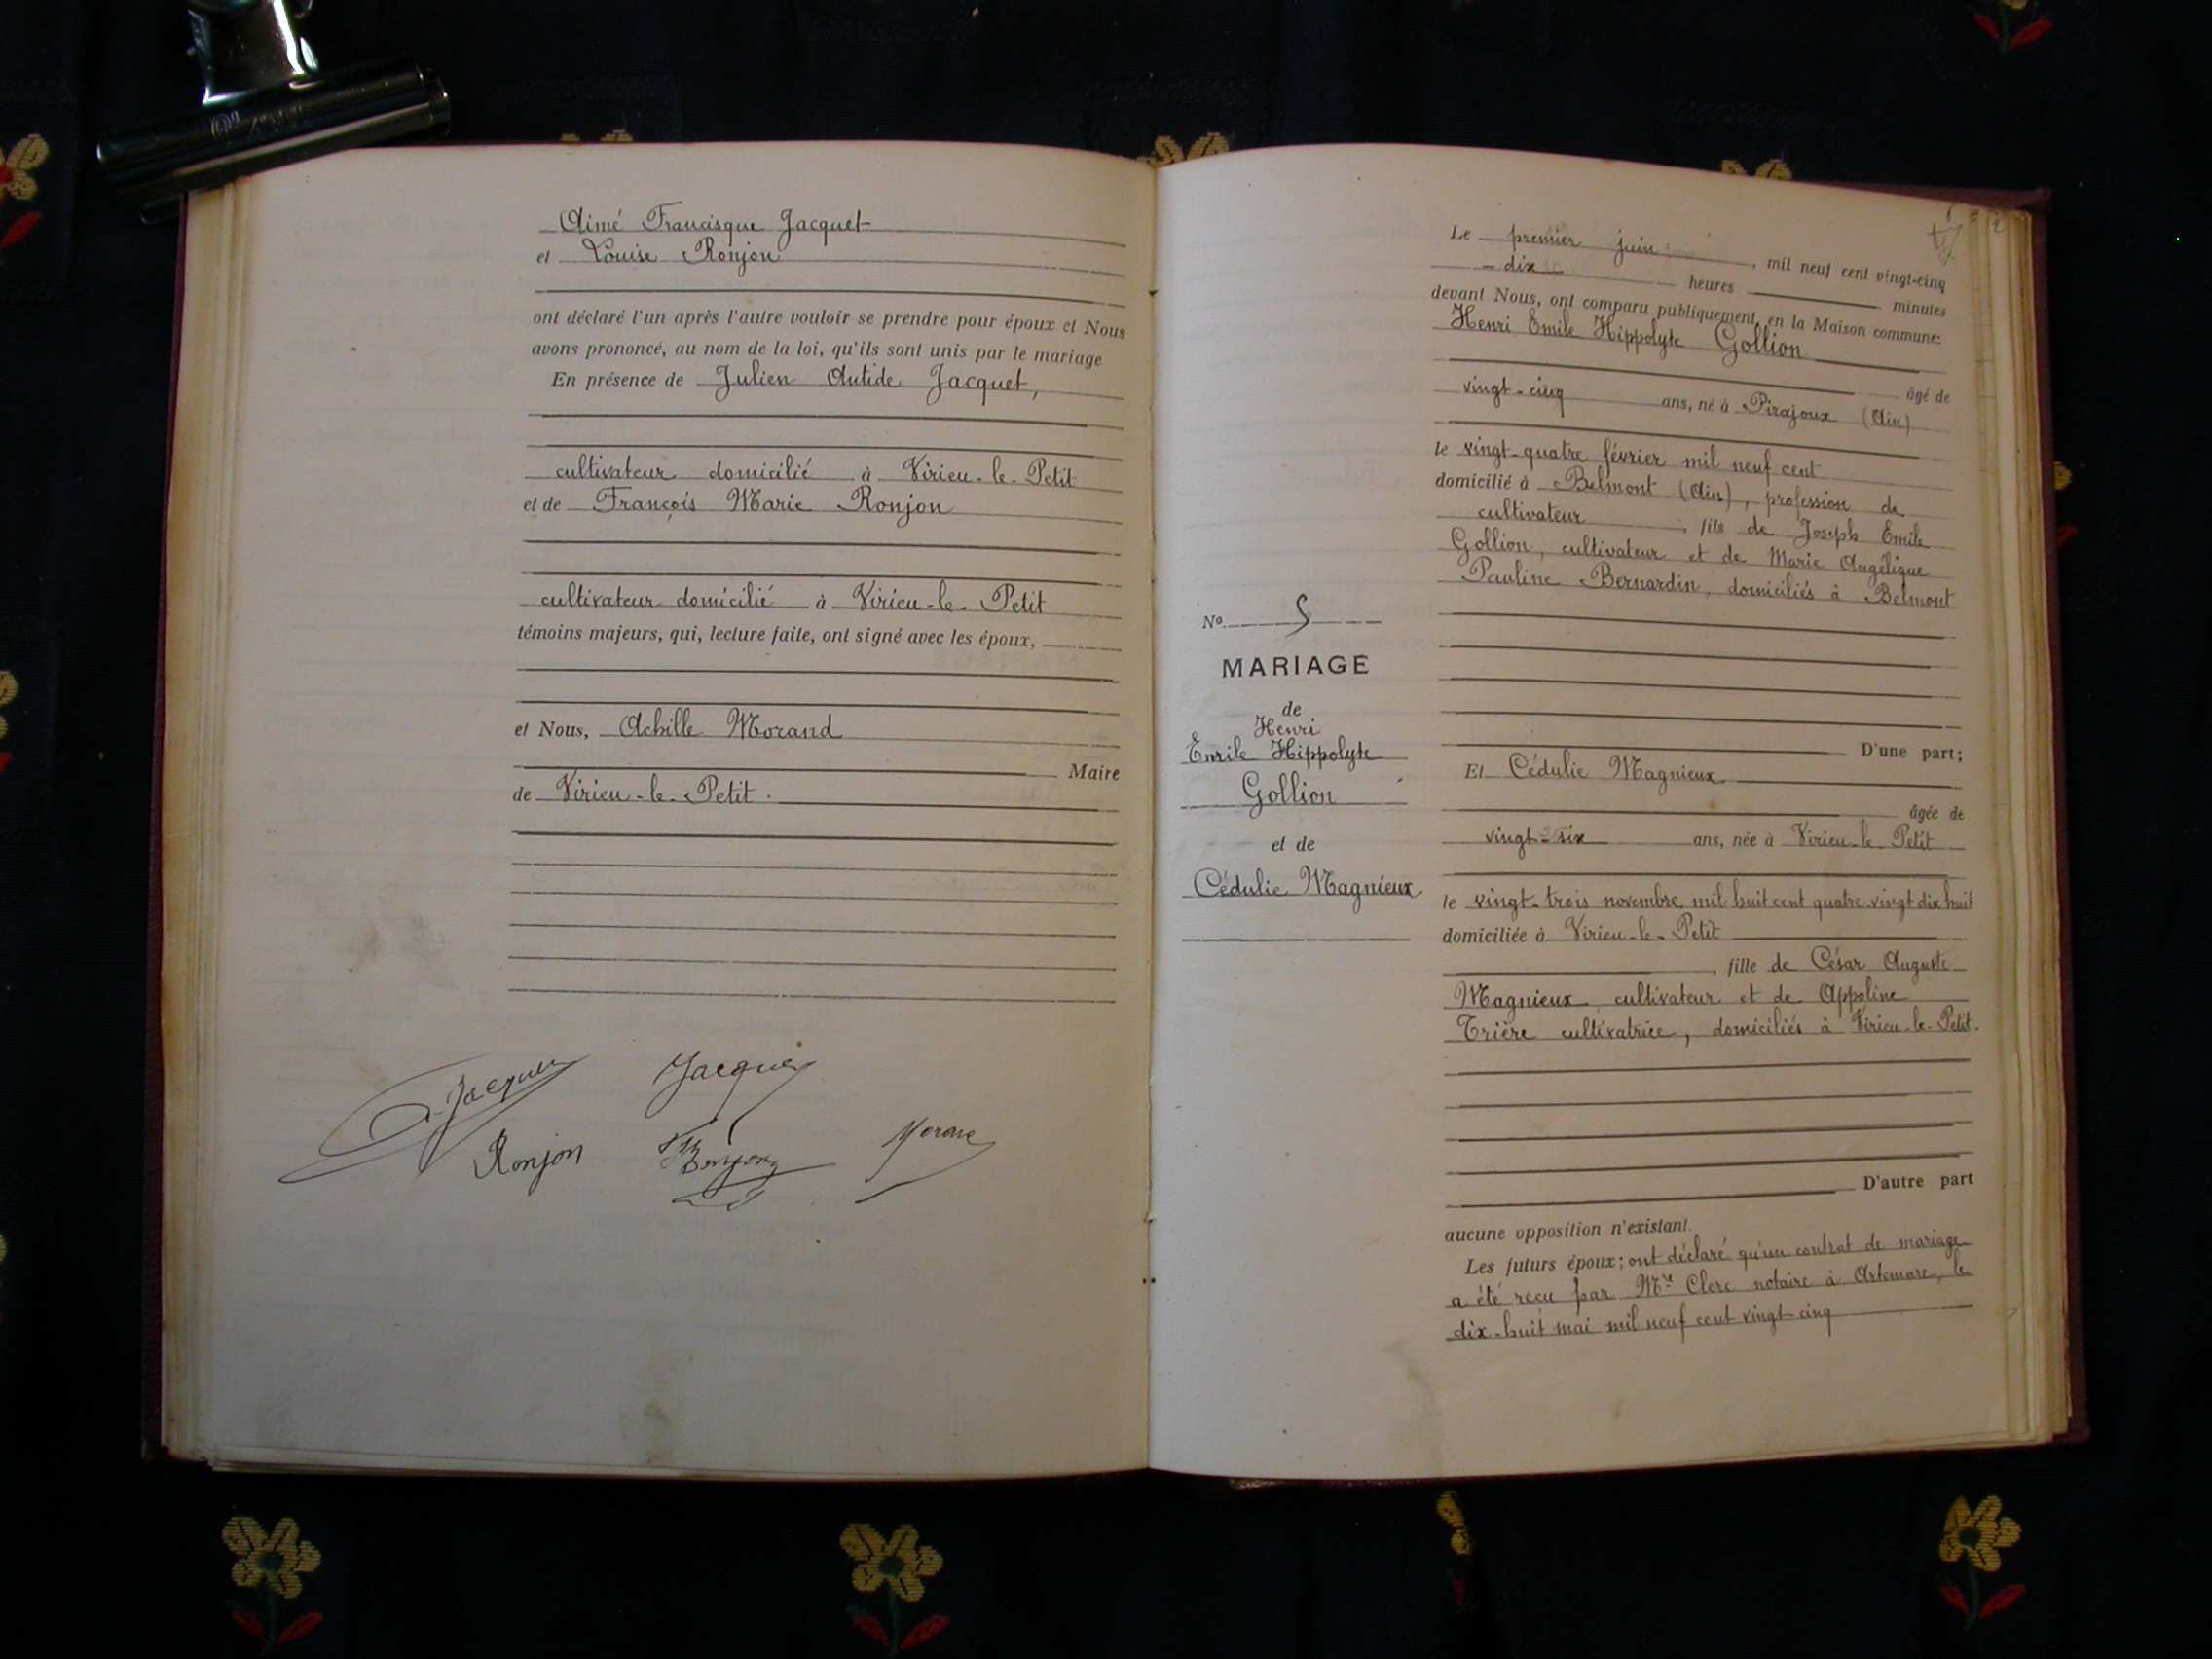 Aimé Francisque Jacquet
et Louise Ronjon
ont déclaré l'un après l'autre vouloir se prendre pour époux et Nous
avons prononcé, au nom de la loi, qu'ils sont unis par le mariage
En présence de Julien Antide Jacquet,
cultivateur domicilié à Virieu-le-Petit
et de François Marie Ronjon
cultivateur domicilié à Virieu-le-Petit
témoins majeurs, qui, lecture faite, ont signé avec les époux,
et Nous, Achille Morand
Maire
de Virieu-le-Petit.
Jacquet
Jacquet
Ronjon
Morand
No 5
MARIAGE
de
Henri
Emile Hippolyte
Gollion
et de
Cédulie Magnieux
Le premier juin, mil neuf cent vingt-cinq
dix heures minutes
devant Nous, ont comparu publiquement en la Maison commune:
Henri Emile Hippolyte Gollion
âgé de
vingt-cinq ans, né à Pirajoux (Ain)
le vingt-quatre février mil neuf cent
domicilié à Belmont (Ain), profession de
cultivateur, fils de Joseph Emile
Gollion, cultivateur et de Marie Angélique
Pauline Bernardin, domiciliés à Belmont
D'une part;
Et Cédulie Magnieux
âgée de
vingt-six ans, née à Virieu-le-Petit
le vingt-trois novembre mil huit cent quatre vingt dix huit
domiciliée à Virieu-le-Petit
, fille de César Auguste
Magnieux cultivateur et de Appoline
Trière cultivatrice, domiciliés à Virieu-le-Petit.
D'autre part
aucune opposition n'existant.
Les futurs époux; ont déclaré qu'un contrat de mariage
a été reçu par Mre Clerc notaire à Artemare, le
dix-huit mai mil neuf cent vingt-cinq